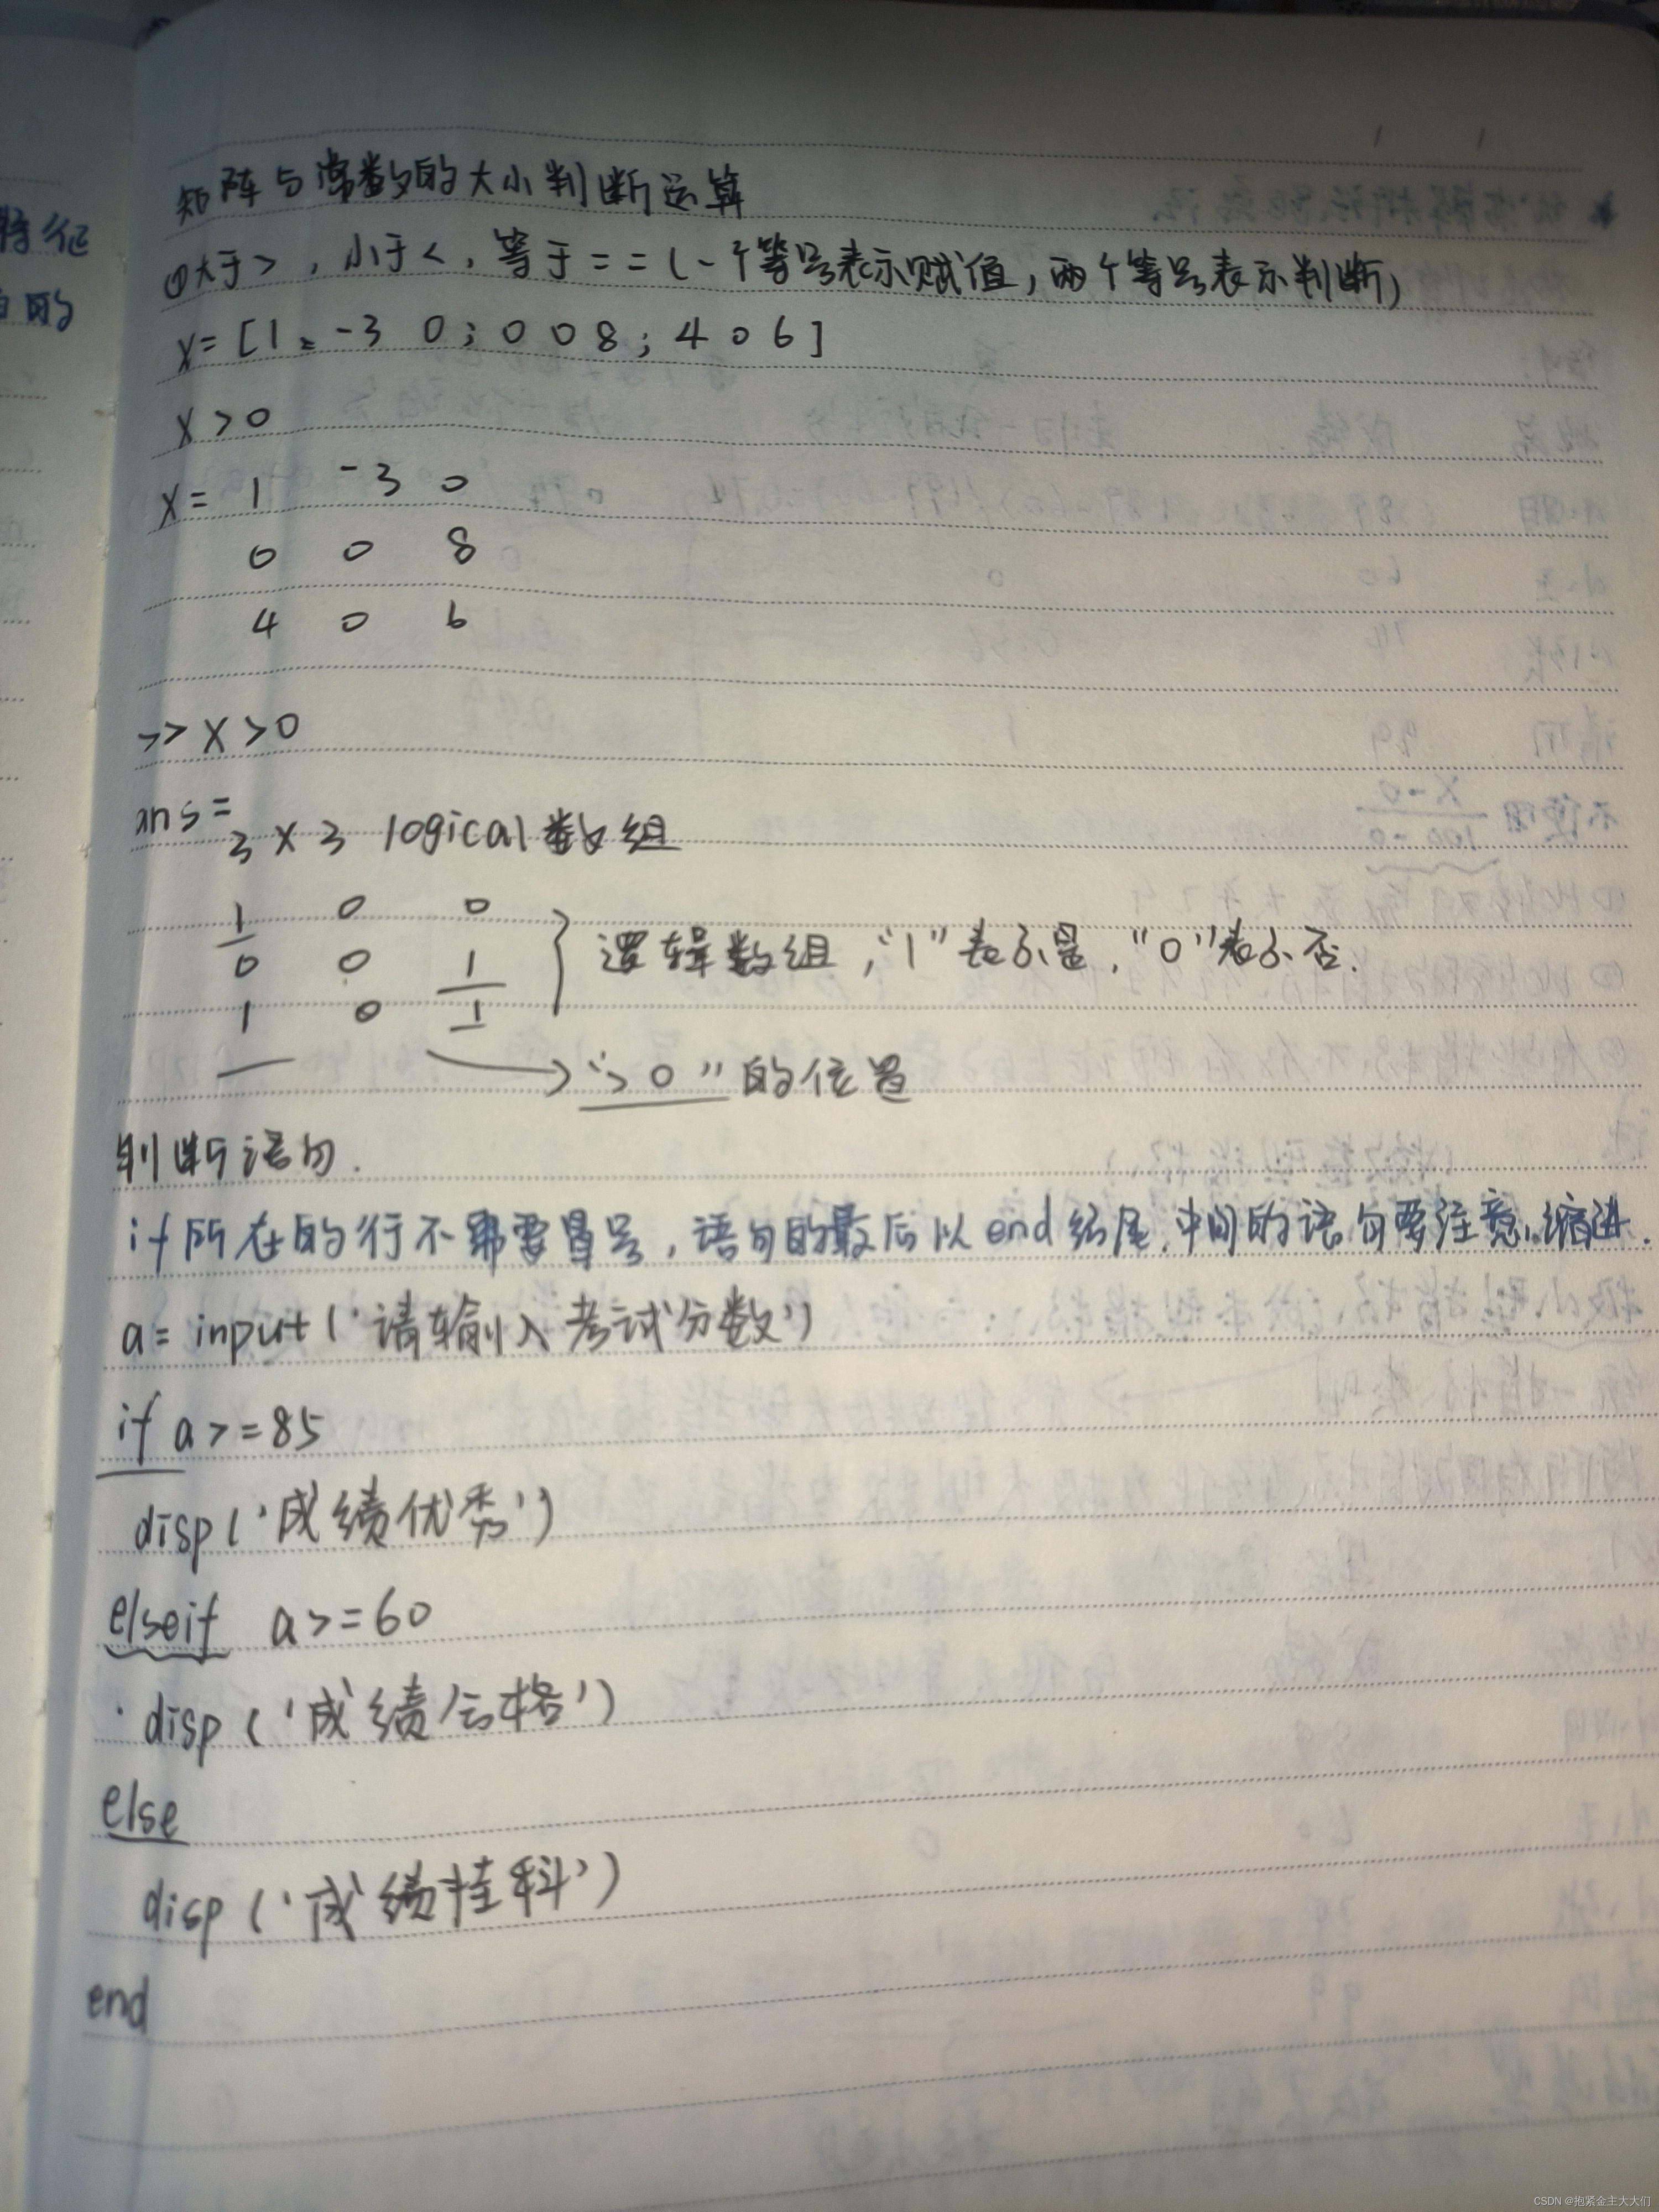 特征
的
矩阵与常数的大小判断运算
①大于>，小于<，等于==(一个等号表示赋值，两个等号表示判断)
X=[1, -3 0;0 0 8;4 0 6]
X>0
X= 1 -3 0
0 0 8
4 0 6
>> X>0
ans=
3×3 logical数组
1 0 0
0 0 1
1 0 1
逻辑数组，"1"表示是，"0"表示否.
">0"的位置
判断语句.
if所在的行不需要冒号，语句的最后以end结尾.中间的语句要注意缩进.
a=input('请输入考试分数')
if a>=85
disp('成绩优秀')
elseif a>=60
disp('成绩合格')
else
disp('成绩挂科')
end
CSDN @抱紧金主大大们